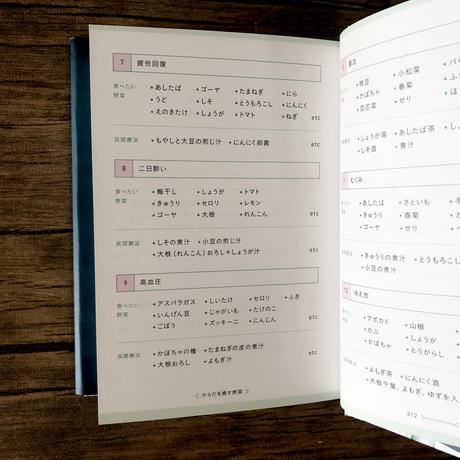 7 疲労回復
食べたい ・あしたば ・ゴーヤ ・たまねぎ ・にら
野菜 ・うど ・しそ ・とうもろこし ・にんにく
・えのきたけ ・しょうが ・トマト ・ねぎ etc
民間療法 ・もやしと大豆の煎じ汁 ・にんにく卵黄 etc
8 二日酔い
食べたい ・梅干し ・しょうが ・トマト
野菜 ・きゅうり ・セロリ ・レモン
・ゴーヤ ・大根 ・れんこん etc
民間療法 ・しその煮汁 ・小豆の煎じ汁
・大根(れんこん)おろし+しょうが汁 etc
9 高血圧
食べたい ・アスパラガス ・しいたけ ・セロリ ・ふき
野菜 ・いんげん豆 ・じゃがいも ・たけのこ
・ごぼう ・ズッキーニ ・にんじん etc
民間療法 ・かぼちゃの種 ・たまねぎの皮の煮汁
・大根おろし ・よもぎ汁 etc
〈からだを癒す野菜〉
貧血
・枝豆 ・小松菜
・かぼちゃ ・春菊
・空芯菜 ・せり
・しょうが湯 ・あしたば茶
・しそ酒 ・青汁
むくみ
・あしたば ・さといも
・きゅうり ・春菊
・ゴーヤ ・せり
・きゅうりの煮汁 ・とうもろこし
・小豆の煮汁
冷え性
・アボカド ・山椒
・かぶ ・しょうが
・かぼちゃ ・とうがらし
・よもぎ茶 ・にんにく酒
・大根干葉、よもぎ、ゆずを入
312